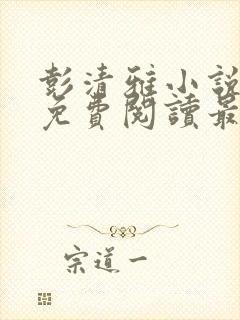 彭清雅小說
免費閱讀最
宗道一